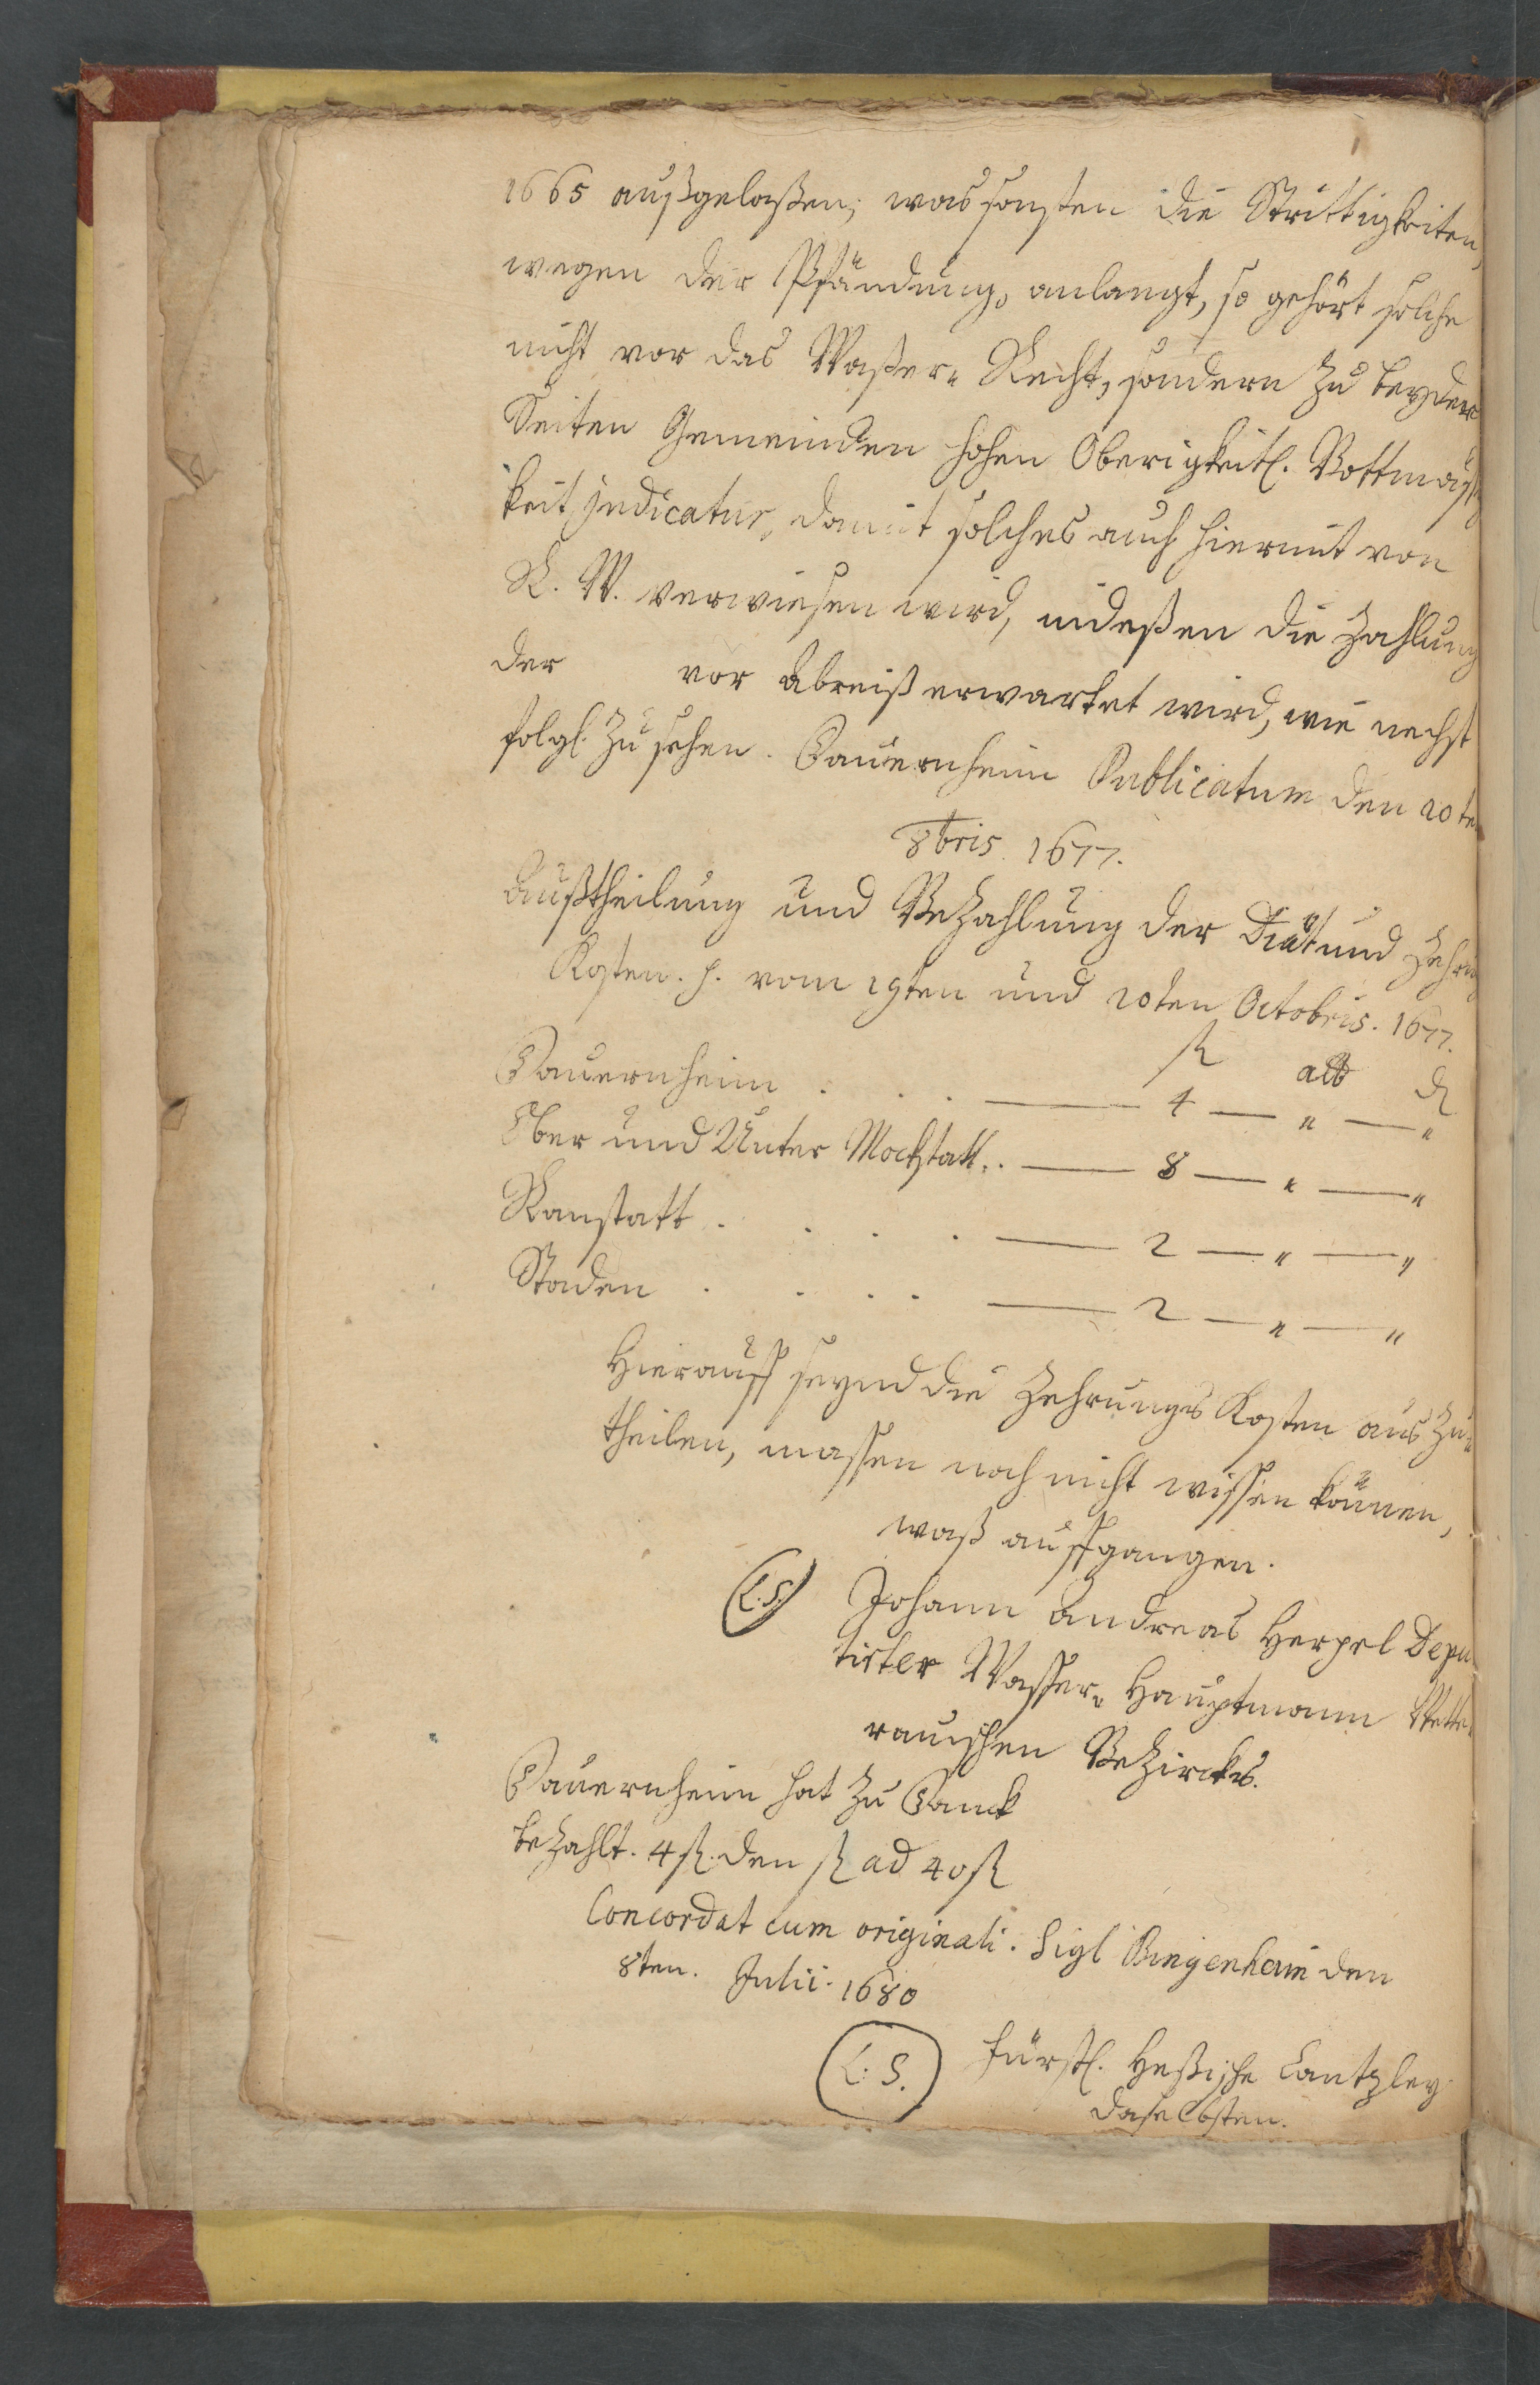 1665 außgelaßen; was sonsten die Strittigkeiten,
wegen der Pfändung, anlangt, so gehört solche
nicht vor das Waßer- Recht, sondern zu beyder
Seiten Gemeinden hohen Oberigkeitl. Bottmäßig
keit judicatur, damit solches auch hiermit von
R. W. verwiesen wird, indeßen die Zahlung
der vor Abreiß erwartet wird, wie nechst
folgl. zu sehen. Dauernheim Publicatum den 20ten
8bris. 1677.
Außtheilung und Bezahlung der Diät und Zehrung
Kosten. p. vom 19ten und 20ten Octobris. 1677.
fl alb d
Dauernheim . . . — 4 — " — "
Ober und Unter Mockstatt. . — 8 — " — "
Ranstatt . . . . — 2 — " — "
Staden . . . . — 2 — " — "
Hierauff seynd die Zehrungs Kosten aus zu-
theilen, massen noch nicht wissen können,
waß auffgangen.
(L.S.) Johann Andreas Herpel Depu
tirter Wasser- Hauptmann Wette
rauischen Bezircks.
Dauernheim hat zu Danck
bezahlt. 4 fl. den fl ad 40 fl
Concordat cum originali. Sigl Bingenheim den
8ten. Julii. 1680
(L. S.) Fürstl. Heßische Cantzley
daselbsten.